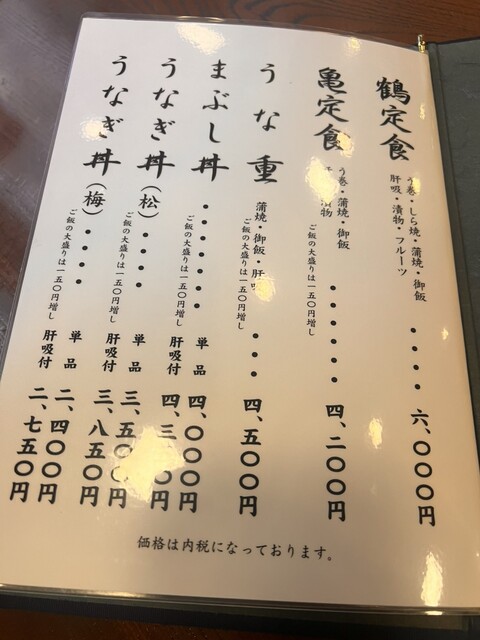 鶴定食
う巻・しら焼・蒲焼・御飯
肝吸・漬物・フルーツ
・・・・
六、〇〇〇円
亀定食
う巻・蒲焼・御飯
漬物
ご飯の大盛りは一五〇円増し
・・・・・・・
四、二〇〇円
うな重
蒲焼・御飯・肝吸
ご飯の大盛りは一五〇円増し
・・・・
四、五〇〇円
まぶし丼
・・・・・・
ご飯の大盛りは一五〇円増し
単品
四、〇〇〇円
肝吸付
四、三
円
うなぎ丼(松)
・・・・
ご飯の大盛りは一五〇円増し
単品
三、五〇〇円
肝吸付
三、八五〇円
うなぎ丼(梅)
・・・・
ご飯の大盛りは一五〇円増し
単品
二、四〇〇円
肝吸付
二、七五〇円
価格は内税になっております。